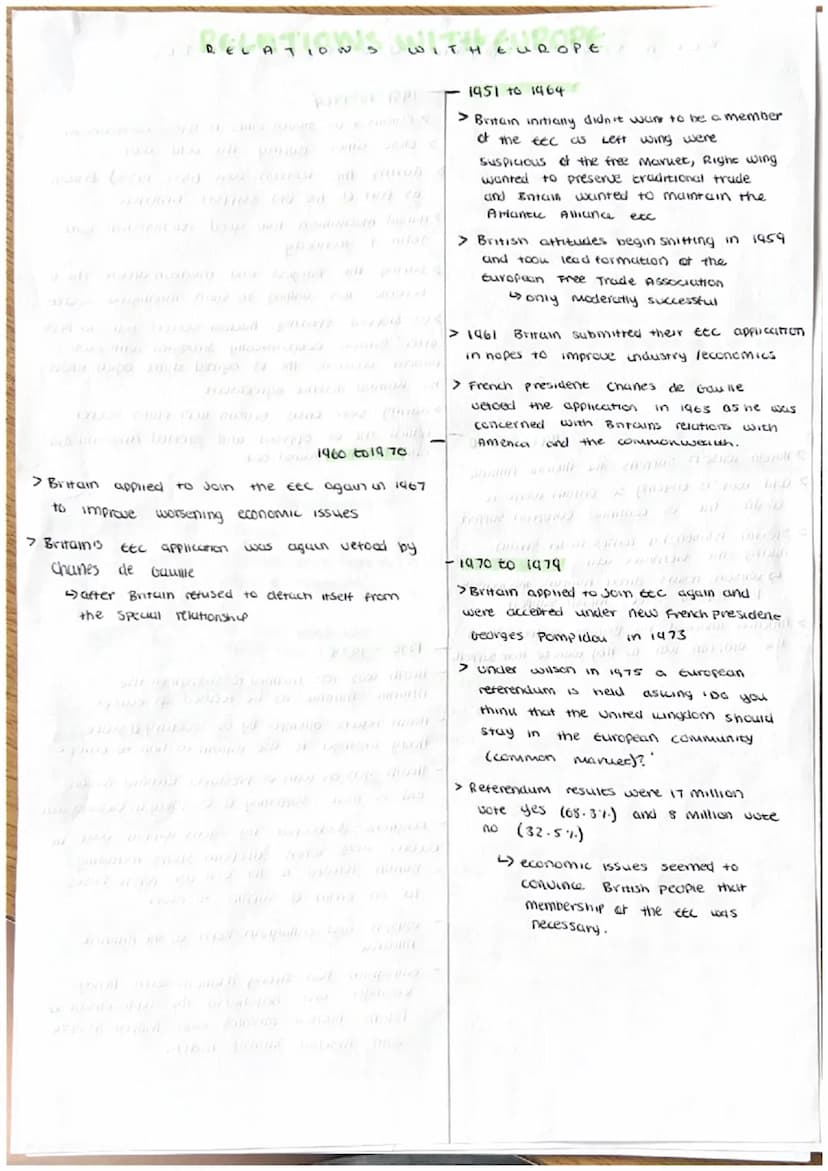 RELATIONS WITH EUROPE
RELATIONS WITH EUROPE
1951 to 1964
> Britain initially didn't want to be a member
of the EEC as Left wing were
suspicious of the free Market, Right wing
wanted to preserve traditional trade
and Britain wanted to maintain the
Atlantic Alliance etc
> British attitudes begin shifting in 1959
and took lead formation of the
European Free Trade Association
↳ only moderatly successful
> 1961 Britain submitted their EEC application
in hopes to improve industry / economics
> French President Charles de Gaulle
vetoed the application in 1963 as he was
concerned with Britains relations with
America and the commonwealth.
1960 to 1970
> Britain applied to join the EEC again in 1967
to improve worsening economic issues
> Britain's EEC application was again vetoed by
Charles de Gaulle
↳ after Britain refused to detach itself from
the special relationship
1970 to 1979
> Britain applied to join EEC again and
were accepted under new French president
Georges Pompidou in 1973
> Under Wilson in 1975 a European
referendum is held asking 'Do you
think that the United Kingdom should
stay in the European community
(common market)?'
> Referendum results were 17 million
vote yes (68.3%) and 8 Million vote
no (32.5%)
↳ economic issues seemed to
convince British people that
membership of the EEC was
necessary.